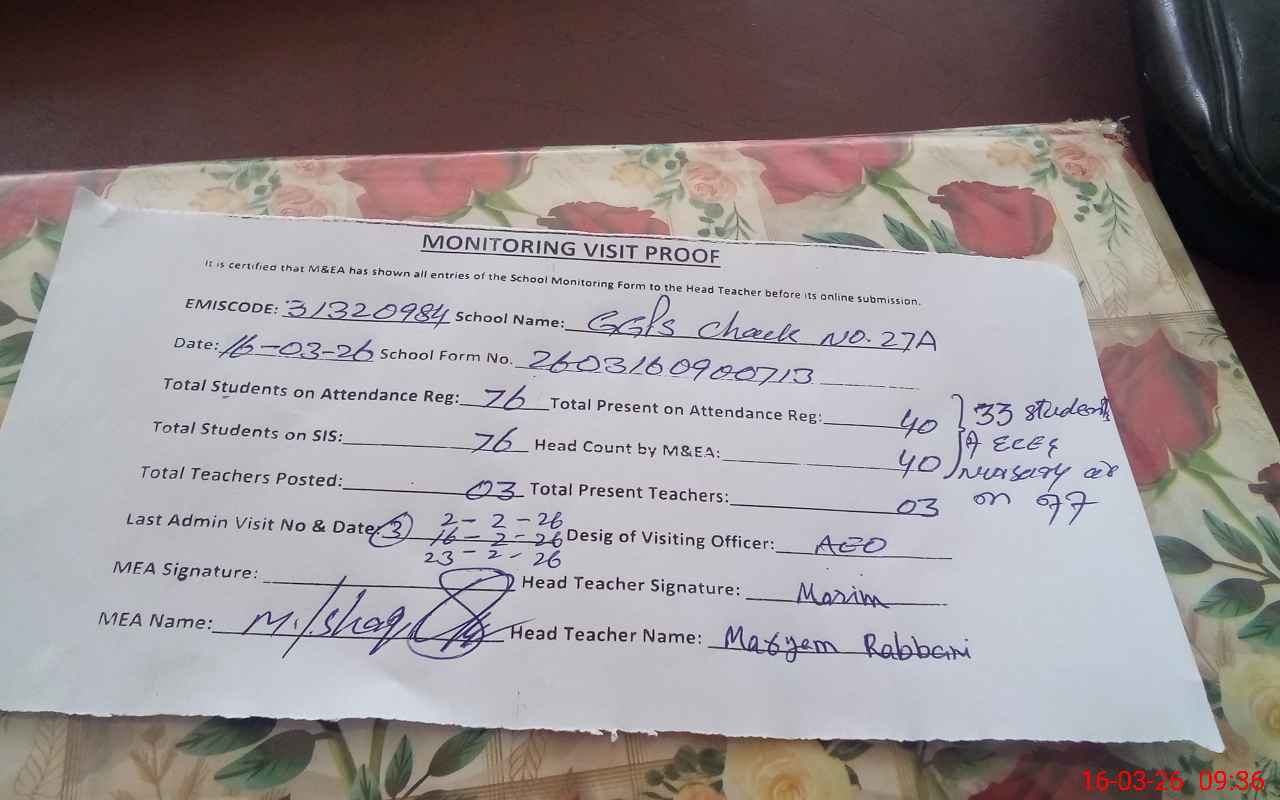 MONITORING VISIT PROOF
It is certified that M&EA has shown all entries of the School Monitoring Form to the Head Teacher before its online submission.
EMISCODE: 31320984 School Name: GGPS Chack NO. 27A
Date: 16-03-26 School Form No. 260316090713
Total Students on Attendance Reg: 76 Total Present on Attendance Reg: 40 } 33 students
Total Students on SIS: 76 Head Count by M&EA: 40 } ECE &
Nursery are
Total Teachers Posted: 03 Total Present Teachers: 03 on
Last Admin Visit No & Date: 3 2-2-26 16-2-26 23-2-26 Desig of Visiting Officer: AEO
MEA Signature: Head Teacher Signature: Marim
MEA Name: M. Ishaq Head Teacher Name: Maryem Rabbani
16-03-26 09:36